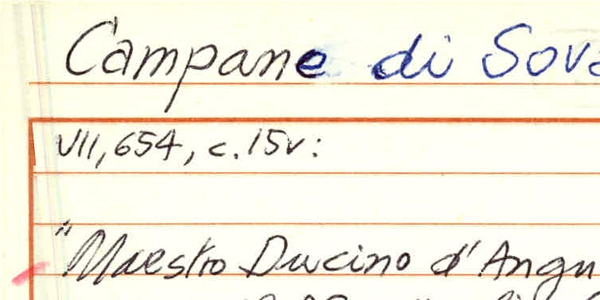 Campane di Sova
VII, 654, c. 15v:
"Maestro Ducino d'Angu